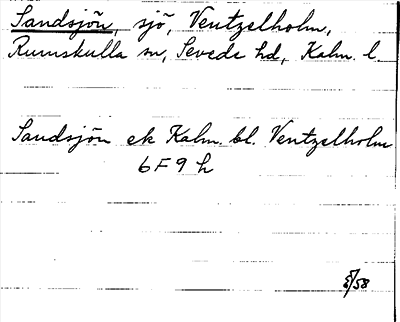 Sandsjön, sjö, Ventzelholm,
Rumskulla sn, Sevede hd, Kalm. l.
Sandsjön ek Kalm. bl. Ventzelholm
6F9h
/58